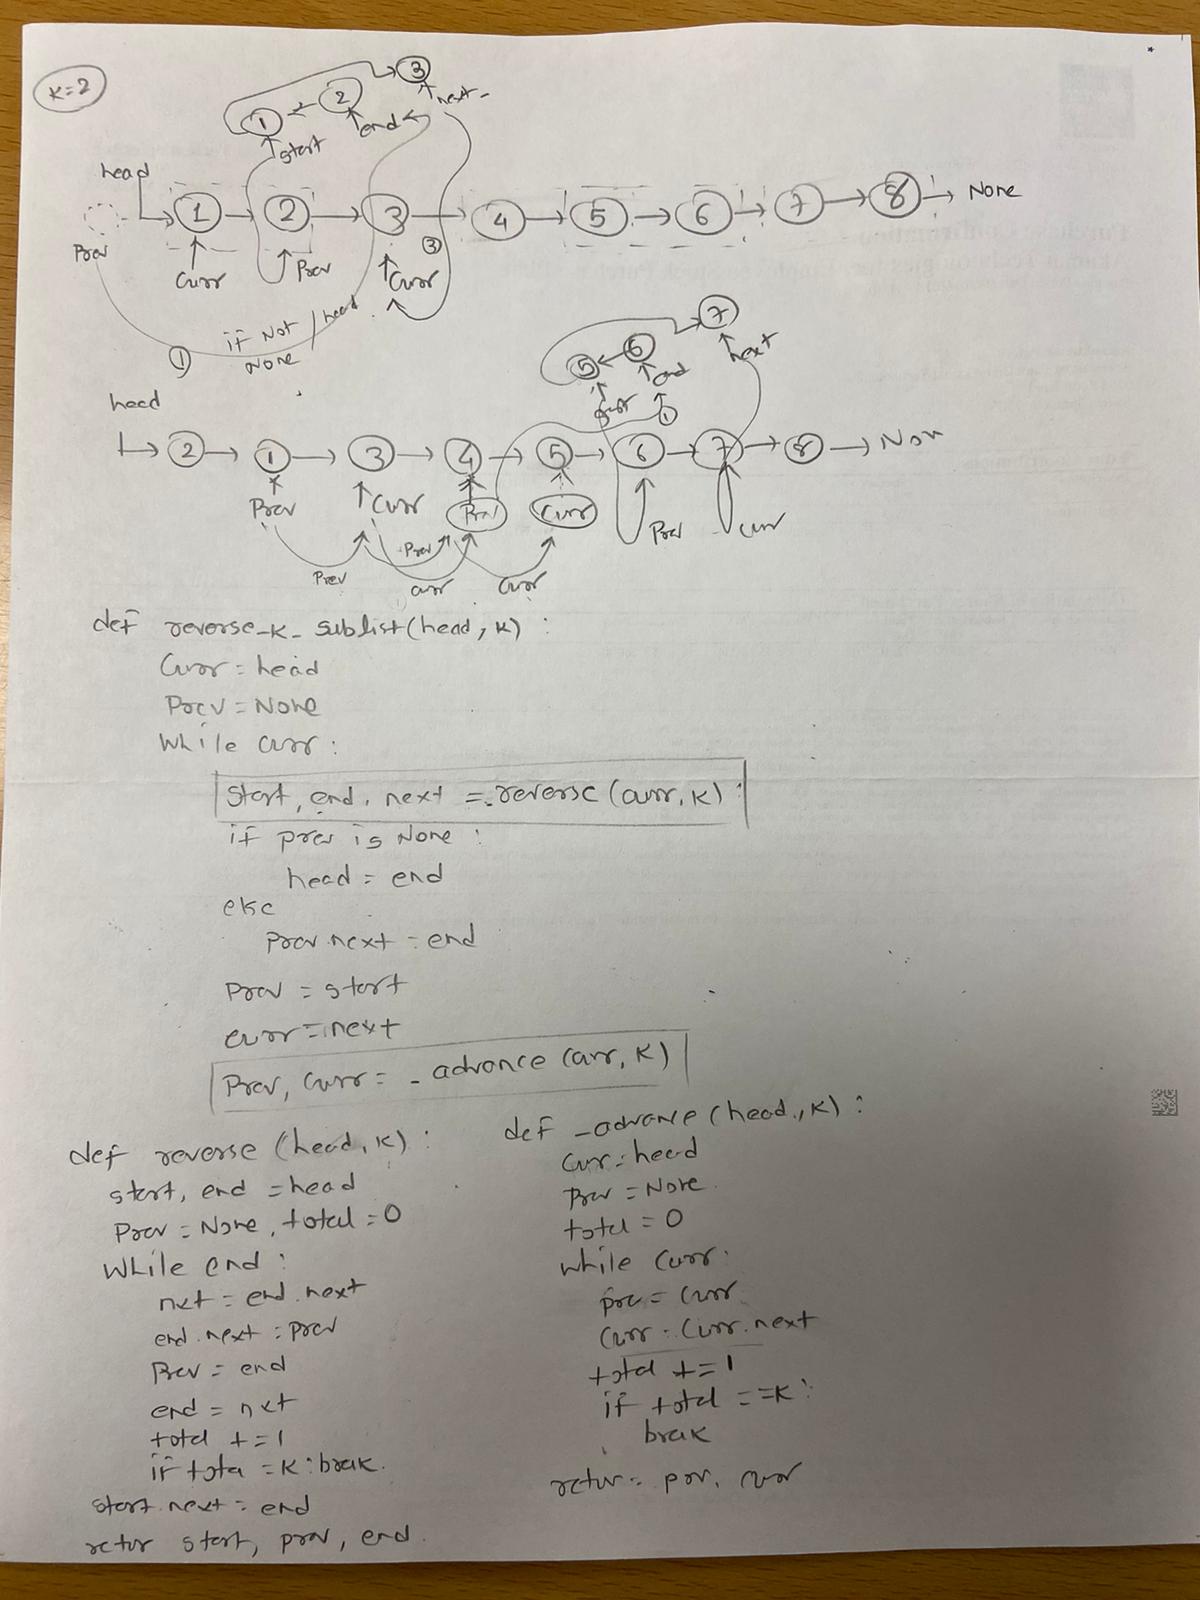 K=2
1 2 3
start end next
head
1 2 3 4 5 6 7 8 None
Prev
Curr Prev Curr
3
1 if Not None / head
5 6 7
end next
1
head
2 1 3 4 5 6 7 8 Non
Prev Curr Prev Curr Prev curr
Prev Prev curr curr
def reverse_k_sublist(head, k):
Curr = head
Prev = None
While curr:
start, end, next = reverse(curr, k):
if prev is None:
head = end
else
Prev.next = end
Prev = start
curr = next
Prev, Curr = _advance(curr, k)
def reverse (head, k):
start, end = head
Prev = None, total = 0
While end:
nxt = end.next
end.next = Prev
Prev = end
end = nxt
total += 1
if tota = k: brak.
start.next = end
retur start, prev, end.
def _advance (head, k):
Curr = head
Prev = None
total = 0
while Curr:
prev = Curr
Curr = Curr.next
total += 1
if total == k:
brak
retur = prv, curr